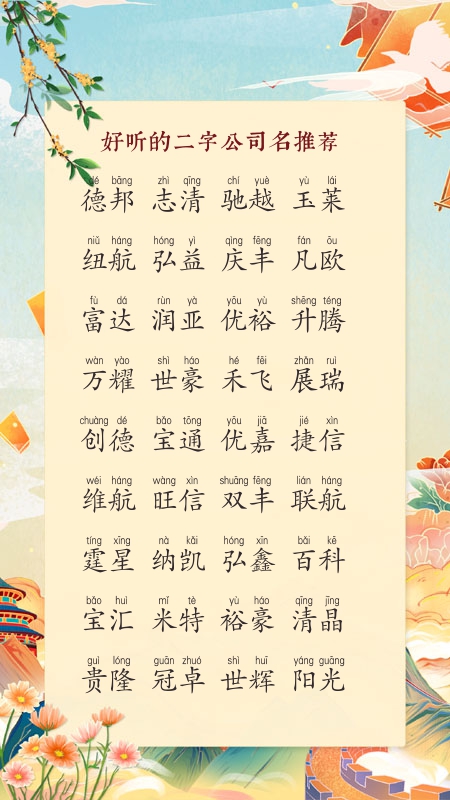 好听的二字公司名推荐
dé bāng zhì qīng chí yuè yù lái
德邦 志清 驰越 玉莱
niǔ háng hóng yì qìng fēng fán ōu
纽航 弘益 庆丰 凡欧
fù dá rùn yà yōu yù shēng téng
富达 润亚 优裕 升腾
wàn yào shì háo hé fēi zhǎn ruì
万耀 世豪 禾飞 展瑞
chuàng dé bǎo tōng yōu jiā jié xìn
创德 宝通 优嘉 捷信
wéi háng wàng xìn shuāng fēng lián háng
维航 旺信 双丰 联航
tíng xīng nà kǎi hóng xīn bǎi kē
霆星 纳凯 弘鑫 百科
bǎo huì mǐ tè yù háo qīng jīng
宝汇 米特 裕豪 清晶
guì lóng guān zhuó shì huī yáng guāng
贵隆 冠卓 世辉 阳光